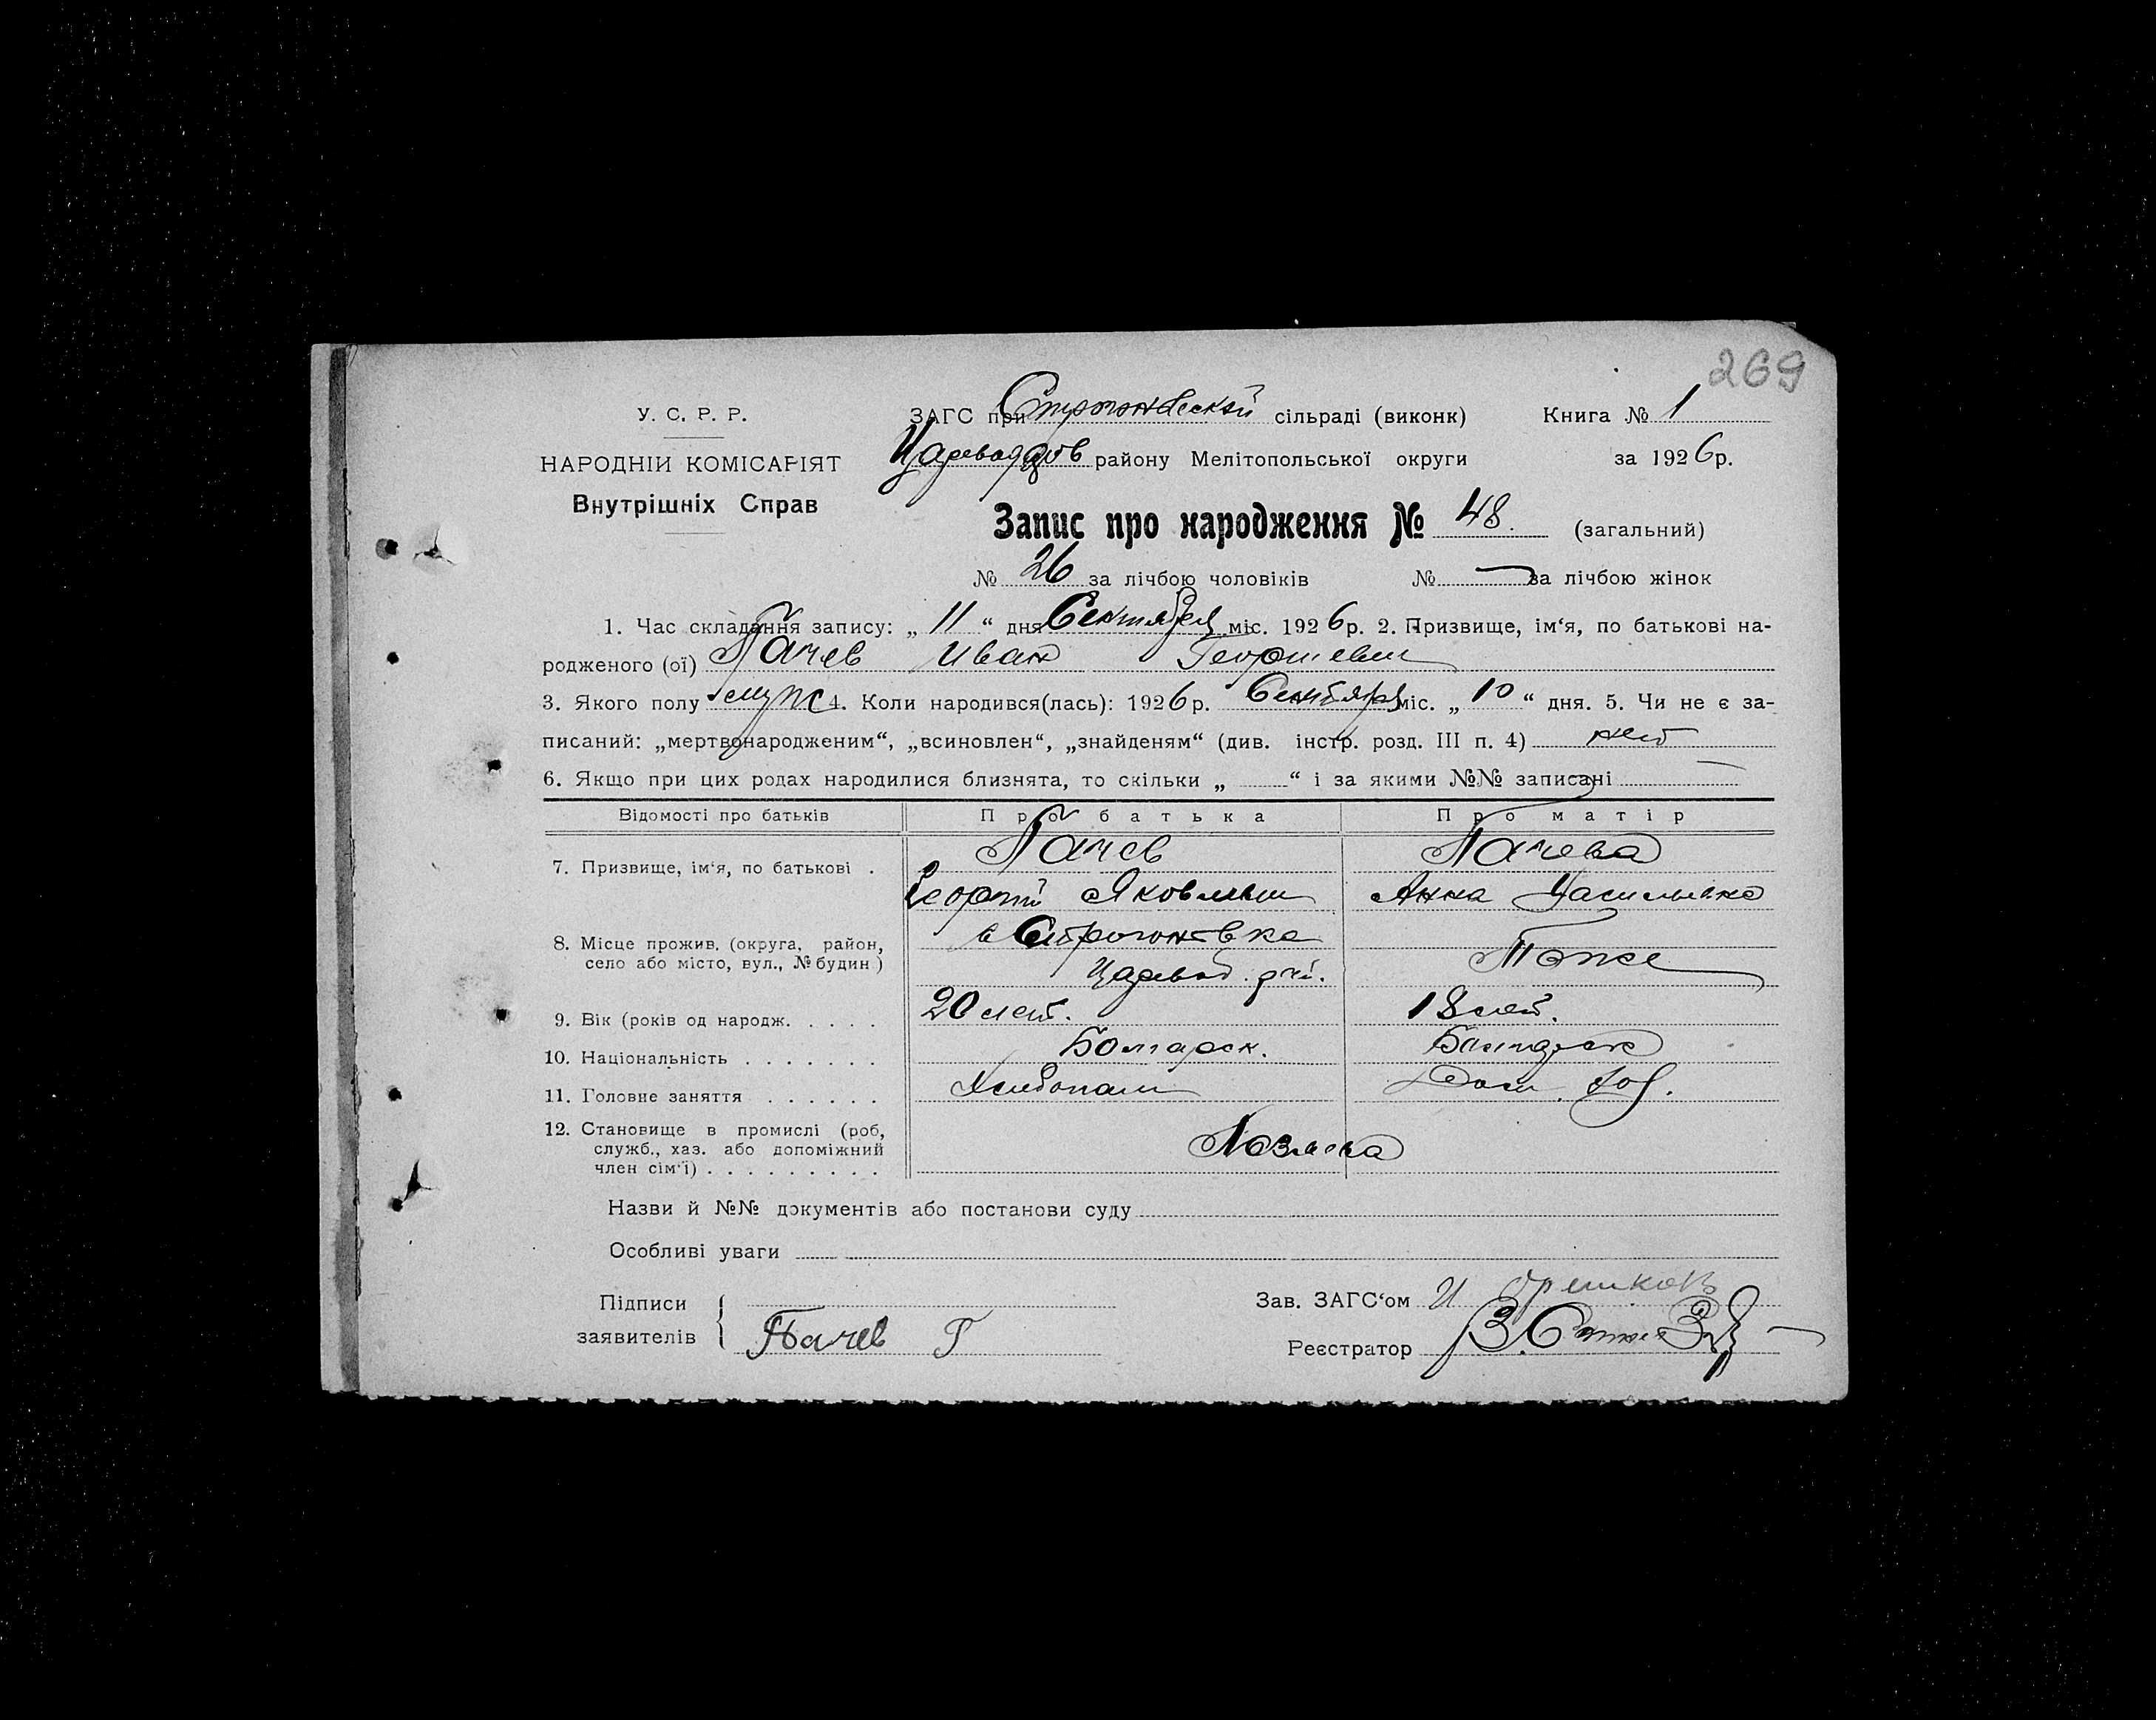 269
У. С. Р. Р.
ЗАГС при Строгоновской сільраді (виконк) Книга № 1
НАРОДНІЙ КОМІСАРІЯТ
району Мелітопольської округи за 1926р.
Внутрішніх Справ
Запис про народження № 48. (загальний)
№ 26 за лічбою чоловіків № — за лічбою жінок
1. Час складання запису: „ 11 “ дня Сентября міс. 1926р. 2. Призвище, ім‘я, по батькові на-
родженого (ої) Пачев Иван Георгиевич
3. Якого полу муж 4. Коли народився(лась): 1926р. Сентября міс. „ 10 “ дня. 5. Чи не є за-
писаний: „мертвонародженим“, „всиновлен“, „знайденям“ (див. інстр. розд. III п. 4) нет
6. Якщо при цих родах народилися близнята, то скільки „ “ і за якими №№ записані —
Відомості про батьків Про батька Про матір
7. Призвище, ім‘я, по батькові . Пачев Пачева
Георгий Яковлевич Анна
8. Місце прожив. (округа, район, село або місто, вул., № будин) с Строгоновка Тоже
Царевод. р-н.
9. Вік (років од народж. . . . . 20 лет. 18 лет.
10. Національність . . . . . . . Болгарск. Болгарск
11. Головне заняття . . . . . . Хлебопаш Дом. хоз.
12. Становище в промислі (роб,
служб., хаз. або допоміжний
член сім‘ї) . . . . . . . . .
Назви й №№ документів або постанови суду
Особливі уваги
Підписи
заявителів Пачев Г
Зав. ЗАГС‘ом И
Реєстратор